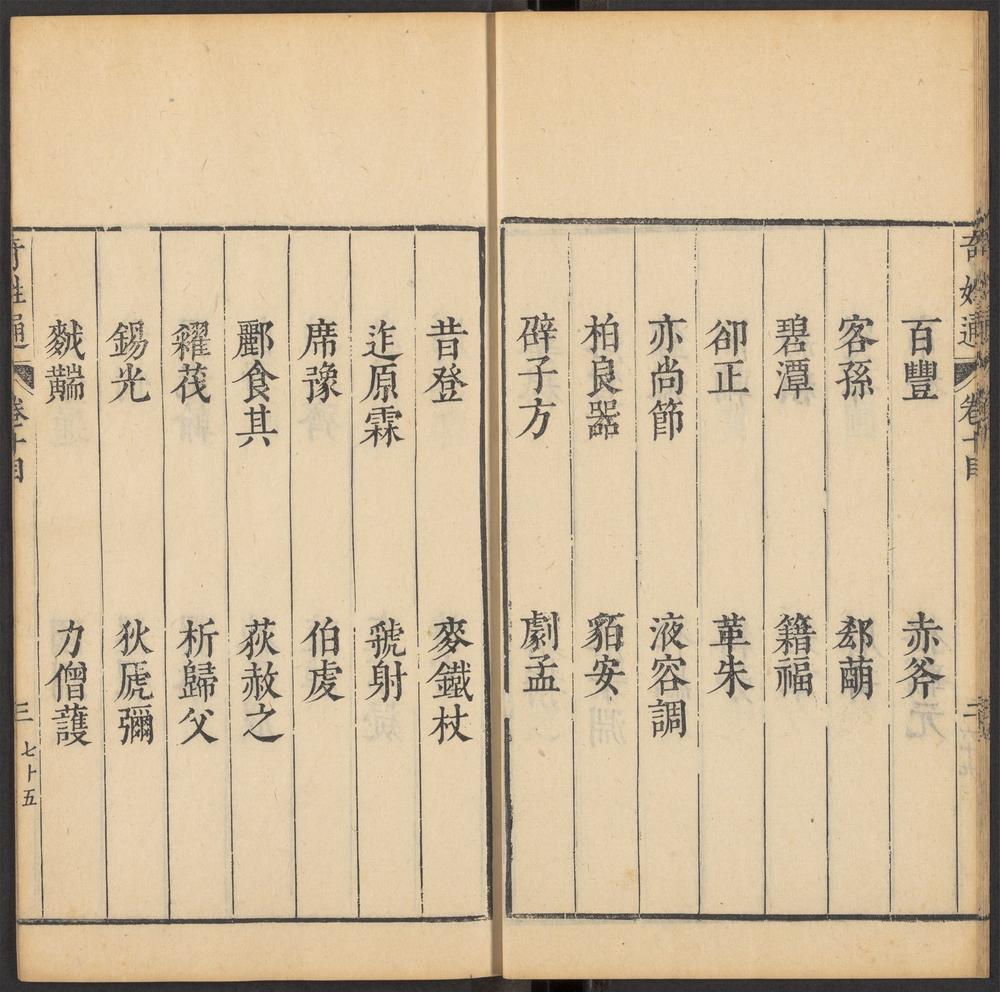 奇姓通 卷十目 二
百豐 赤斧
客孫 郄萌
碧潭 籍福
卻正 革朱
亦尚節 液容調
柏良器 貊安
辟子方 劇孟
昔登 麥鐵杖
迮原霖 虢射
席豫 伯虔
酈食其 荻赦之
糴茷 析歸父
錫光 狄虒彌
黻 力僧護
奇姓通 卷十目 三 七十五